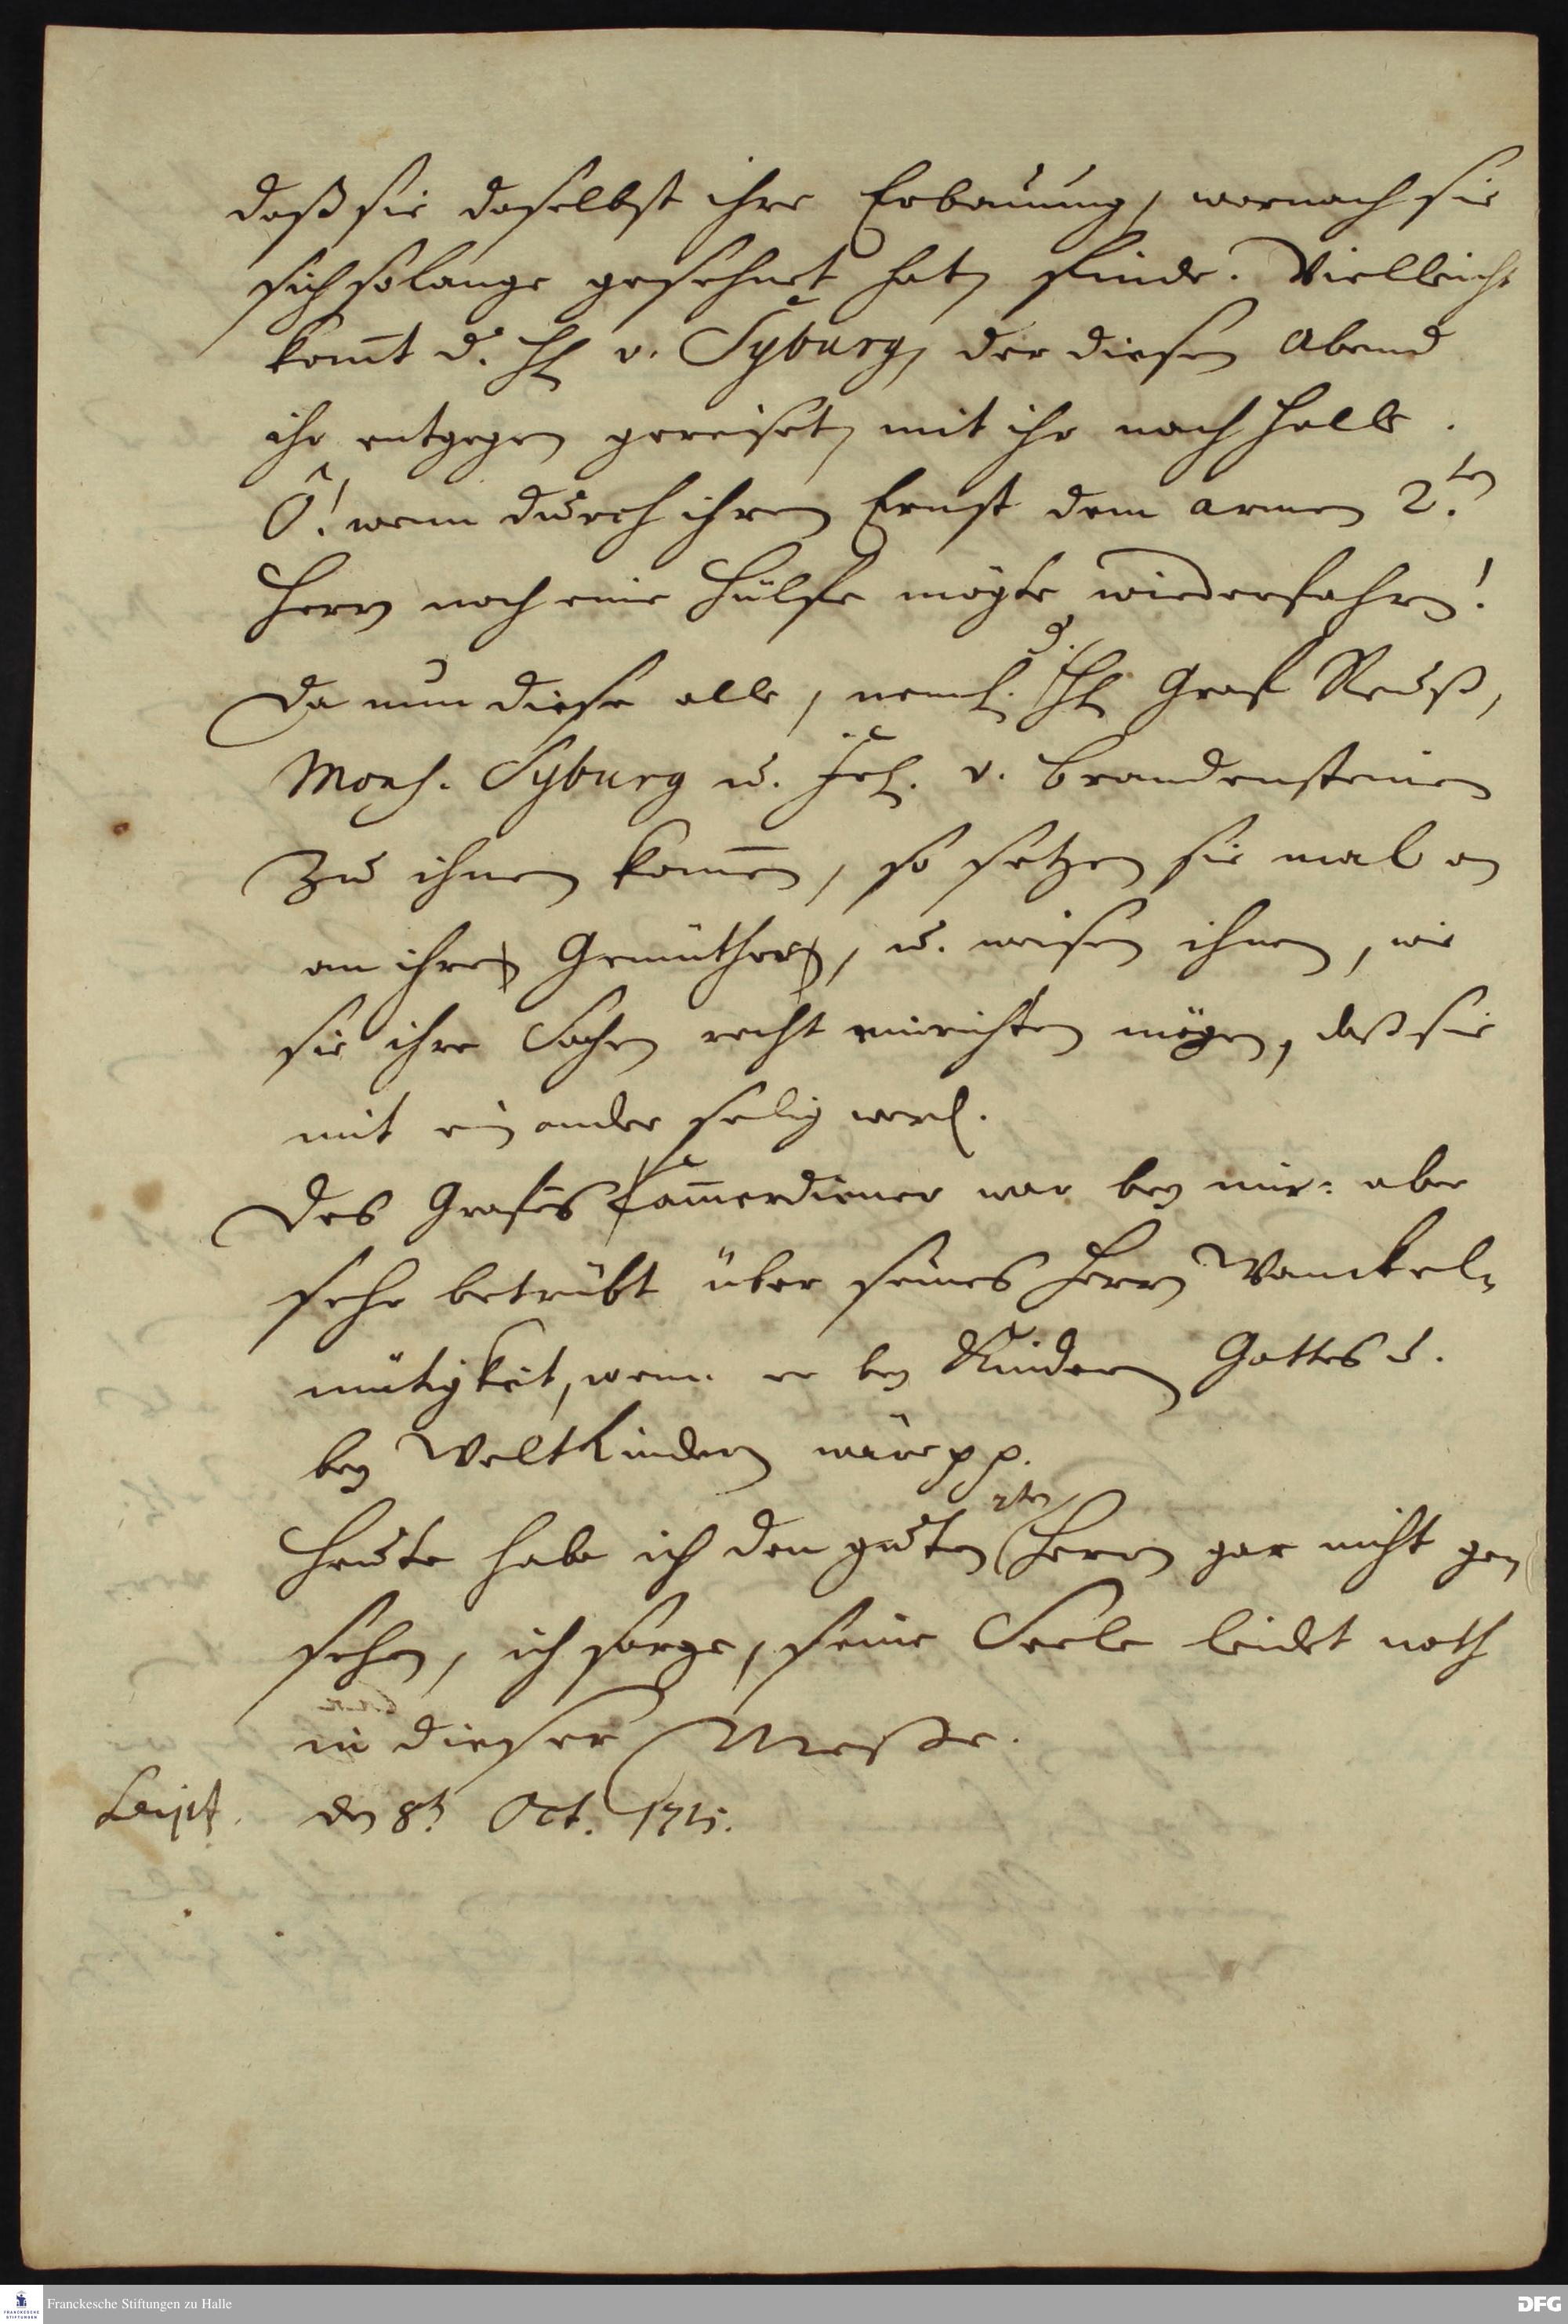 daß sie daselbst ihre Erbauung, wornach sie
sich solange gesehnet hat, finde. Vielleicht
kom̄t d. H. v. Syburg, der diesen Abend
ihr entgegen gereiset, mit ihr nach Halle.
O! wenn durch ihren Ernst dem armen 2.ten
Herrn noch eine Hülfe mögte wiederfahren!
Da nun diese alle, neml. d. H. Graf Reuß,
Mons. Syburg u. Frl. v. Brandensteinen
zu ihnen kom̄en, so setzen sie mal an
an ihre Gemüther, u. weisen ihnen, wie
sie ihre Sachen recht einrichten mögen, daß sie
mit ein ander selig werd.
Des Grafens Cam̄erdiener war bey mir: aber
sehr betrübt über seines Herrn Wanckel-
mütigkeit, wenn er bey Kindern Gottes u.
bey Weltkindern wäre pp.
Heute habe ich den guten 2ten Herrn gar nicht ge-
sehen, ich sorge, seine Seele leidet noth
in dieser Messe.
Leipz. den 8t. Oct. 1715.
Franckesche Stiftungen zu Halle
FRANCKESCHE STIFTUNGEN
DFG